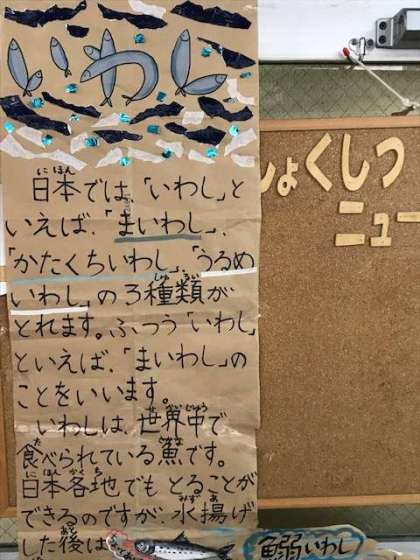 いわし
に ほん
日本では、「いわし」と
いえば、「まいわし」、
「かたくちいわし」、「うるめ
しゅ るい
いわし」の3種類が
とれます。ふつう「いわし」
といえば、「まいわし」の
ことをいいます。
せ かいじゅう
いわしは、世界中で
た さかな
食べられている魚です。
に ほん かく ち
日本各地でも とることが
みず あ
できるのですが、水揚げ
あと
した後は
しょくしつ
ニュー
鰯いわし